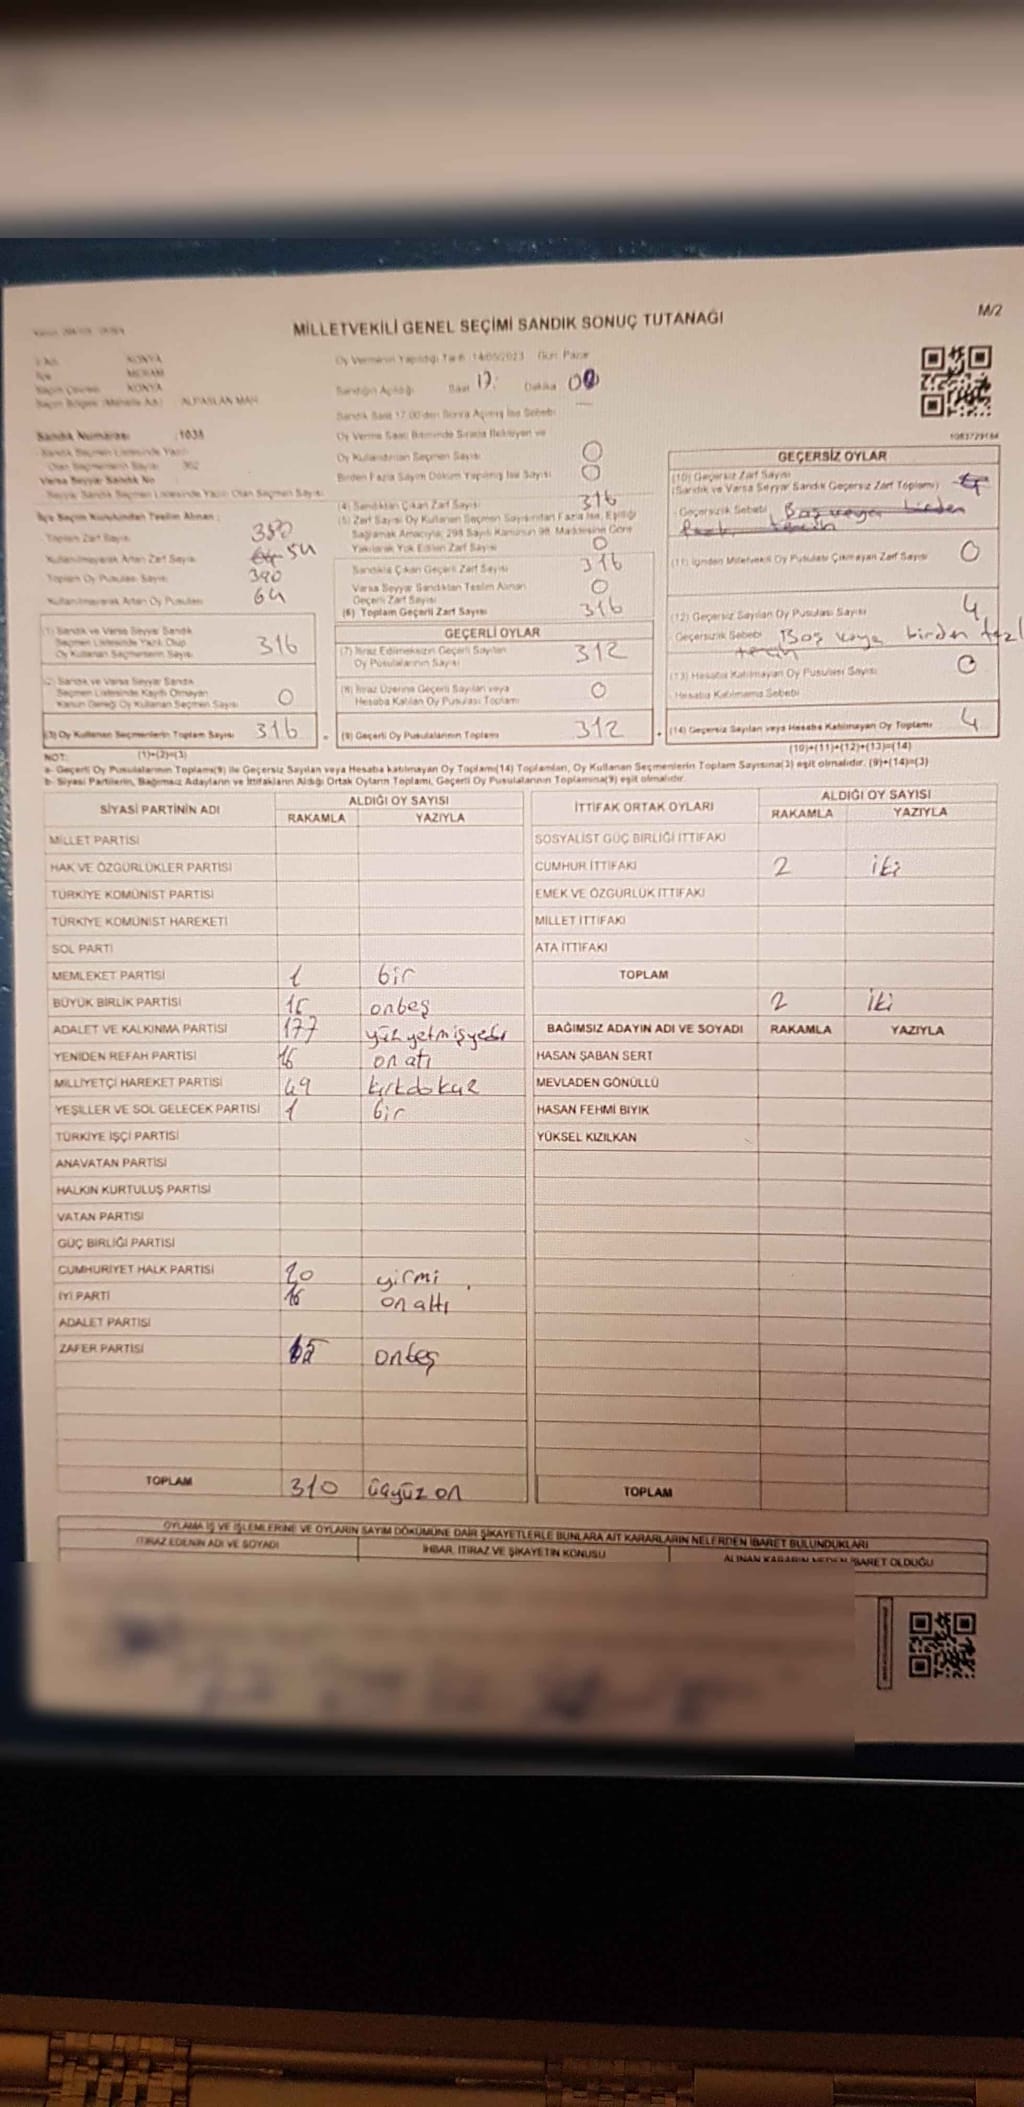 M/2
MİLLETVEKİLİ GENEL SEÇİMİ SANDIK SONUÇ TUTANAĞI
KONYA
MERAM
Seçim Çevresi KONYA
ALPARSLAN MAH
Sandık Numarası :1038
Sandık Seçmen Listesinde Yazılı
Olan Seçmenlerin Sayısı 362
Varsa Seyyar Sandık No
Seyyar Sandık Seçmen Listesinde Yazılı Olan Seçmen Sayısı
İlçe Seçim Kurulundan Teslim Alınan :
Toplam Zarf Sayısı 380
Kullanılmayarak Artan Zarf Sayısı 64 54
Toplam Oy Pusulası Sayısı 390
Kullanılmayarak Artan Oy Pusulası 64
(1) Sandık ve Varsa Seyyar Sandık
Seçmen Listesinde Yazılı Olup
Oy Kullanan Seçmenlerin Sayısı 316
(2) Sandık ve Varsa Seyyar Sandık
Seçmen Listesinde Kayıtlı Olmayan
Kanun Gereği Oy Kullanan Seçmen Sayısı 0
(3) Oy Kullanan Seçmenlerin Toplam Sayısı 316
Oy Vermenin Yapıldığı Tarih :14/05/2023 Gün: Pazar
Sandığın Açıldığı Saat 17: Dakika 00
Sandık Saat 17:00'den Sonra Açılmış İse Sebebi
Oy Verme Saati Bitiminde Sırada Bekleyen ve
Oy Kullandırılan Seçmen Sayısı 0
Birden Fazla Sayım Döküm Yapılmış İse Sayısı 0
(4) Sandıktan Çıkan Zarf Sayısı 316
(5) Zarf Sayısı Oy Kullanan Seçmen Sayısından Fazla İse, Eşitliği
Sağlamak Amacıyla, 298 Sayılı Kanunun 98. Maddesine Göre
Yakılarak Yok Edilen Zarf Sayısı 0
Sandıkta Çıkan Geçerli Zarf Sayısı 316
Varsa Seyyar Sandıktan Teslim Alınan
Geçerli Zarf Sayısı 0
(6) Toplam Geçerli Zarf Sayısı 316
GEÇERLİ OYLAR
(7) İtiraz Edilmeksizin Geçerli Sayılan
Oy Pusulalarının Sayısı 312
(8) İtiraz Üzerine Geçerli Sayılan veya
Hesaba Katılan Oy Pusulası Toplamı 0
= (9) Geçerli Oy Pusulalarının Toplamı 312
1083729184
GEÇERSİZ OYLAR
(10) Geçersiz Zarf Sayısı
(Sandık ve Varsa Seyyar Sandık Geçersiz Zarf Toplamı)
Geçersizlik Sebebi Boş veya birden
fazla tercih
(11) İçinden Milletvekili Oy Pusulası Çıkmayan Zarf Sayısı 0
(12) Geçersiz Sayılan Oy Pusulası Sayısı 4
Geçersizlik Sebebi Boş veya birden fazl
tercih
(13) Hesaba Katılmayan Oy Pusulası Sayısı 0
Hesaba Katılmama Sebebi
+ (14) Geçersiz Sayılan veya Hesaba Katılmayan Oy Toplamı 4
NOT: (1)+(2)=(3) (10)+(11)+(12)+(13)=(14)
a- Geçerli Oy Pusulalarının Toplamı(9) ile Geçersiz Sayılan veya Hesaba katılmayan Oy Toplamı(14) Toplamları, Oy Kullanan Seçmenlerin Toplam Sayısına(3) eşit olmalıdır. (9)+(14)=(3)
b- Siyasi Partilerin, Bağımsız Adayların ve İttifakların Aldığı Ortak Oyların Toplamı, Geçerli Oy Pusulalarının Toplamına(9) eşit olmalıdır.
SİYASİ PARTİNİN ADI ALDIĞI OY SAYISI
RAKAMLA YAZIYLA
MİLLET PARTİSİ
HAK VE ÖZGÜRLÜKLER PARTİSİ
TÜRKİYE KOMÜNİST PARTİSİ
TÜRKİYE KOMÜNİST HAREKETİ
SOL PARTİ
MEMLEKET PARTİSİ 1 bir
BÜYÜK BİRLİK PARTİSİ 15 onbeş
ADALET VE KALKINMA PARTİSİ 177 yüzyetmişyedi
YENİDEN REFAH PARTİSİ 16 onatı
MİLLİYETÇİ HAREKET PARTİSİ 49 kırkdokuz
YEŞİLLER VE SOL GELECEK PARTİSİ 1 bir
TÜRKİYE İŞÇİ PARTİSİ
ANAVATAN PARTİSİ
HALKIN KURTULUŞ PARTİSİ
VATAN PARTİSİ
GÜÇ BİRLİĞİ PARTİSİ
CUMHURİYET HALK PARTİSİ 20 yirmi
İYİ PARTİ 16 onaltı
ADALET PARTİSİ
ZAFER PARTİSİ 15 onbeş
TOPLAM 310 üçyüzon
İTTİFAK ORTAK OYLARI ALDIĞI OY SAYISI
RAKAMLA YAZIYLA
SOSYALİST GÜÇ BİRLİĞİ İTTİFAKI
CUMHUR İTTİFAKI 2 iki
EMEK VE ÖZGÜRLÜK İTTİFAKI
MİLLET İTTİFAKI
ATA İTTİFAKI
TOPLAM
2 iki
BAĞIMSIZ ADAYIN ADI VE SOYADI RAKAMLA YAZIYLA
HASAN ŞABAN SERT
MEVLADEN GÖNÜLLÜ
HASAN FEHMİ BIYIK
YÜKSEL KIZILKAN
TOPLAM
OYLAMA İŞ VE İŞLEMLERİNE VE OYLARIN SAYIM DÖKÜMÜNE DAİR ŞİKAYETLERLE BUNLARA AİT KARARLARIN NELERDEN İBARET BULUNDUKLARI
İTİRAZ EDENİN ADI VE SOYADI İHBAR, İTİRAZ VE ŞİKAYETİN KONUSU ALINAN KARARIN NEDEN İBARET OLDUĞU